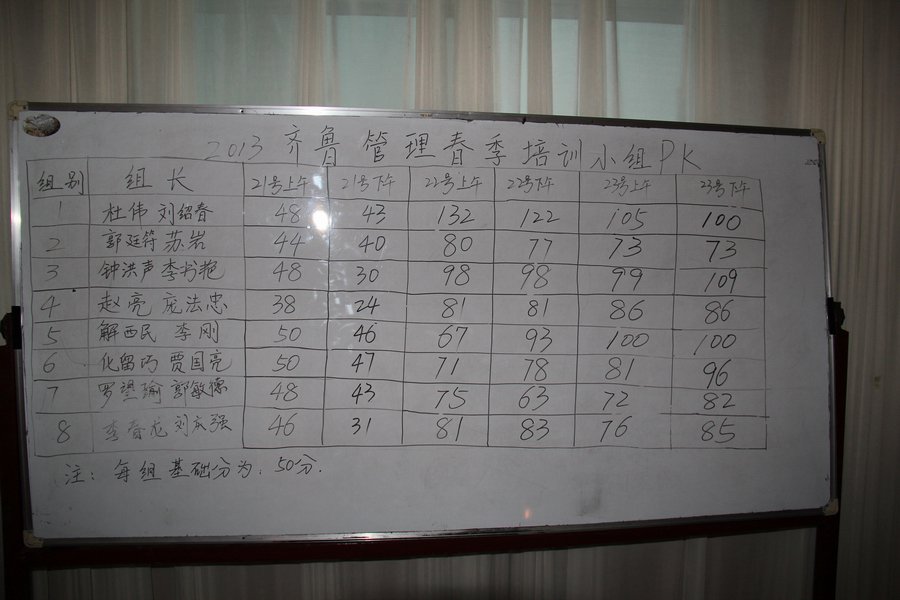 2013 齐鲁管理春季培训小组PK
组别 组长 21号上午 21号下午 22号上午 22号下午 23号上午 23号下午
1 杜伟 刘绍春 48 43 132 122 105 100
2 郭廷符 苏岩 44 40 80 77 73 73
3 钟洪声 李书艳 48 30 98 98 99 109
4 赵亮 庞法忠 38 24 81 81 86 86
5 解西民 李刚 50 46 67 93 100 100
6 化留巧 贾国亮 50 47 71 78 81 96
7 罗望瑜 郭敏德 48 43 75 63 72 82
8 李春龙 刘庆强 46 31 81 83 76 85
注: 每组基础分为: 50分.